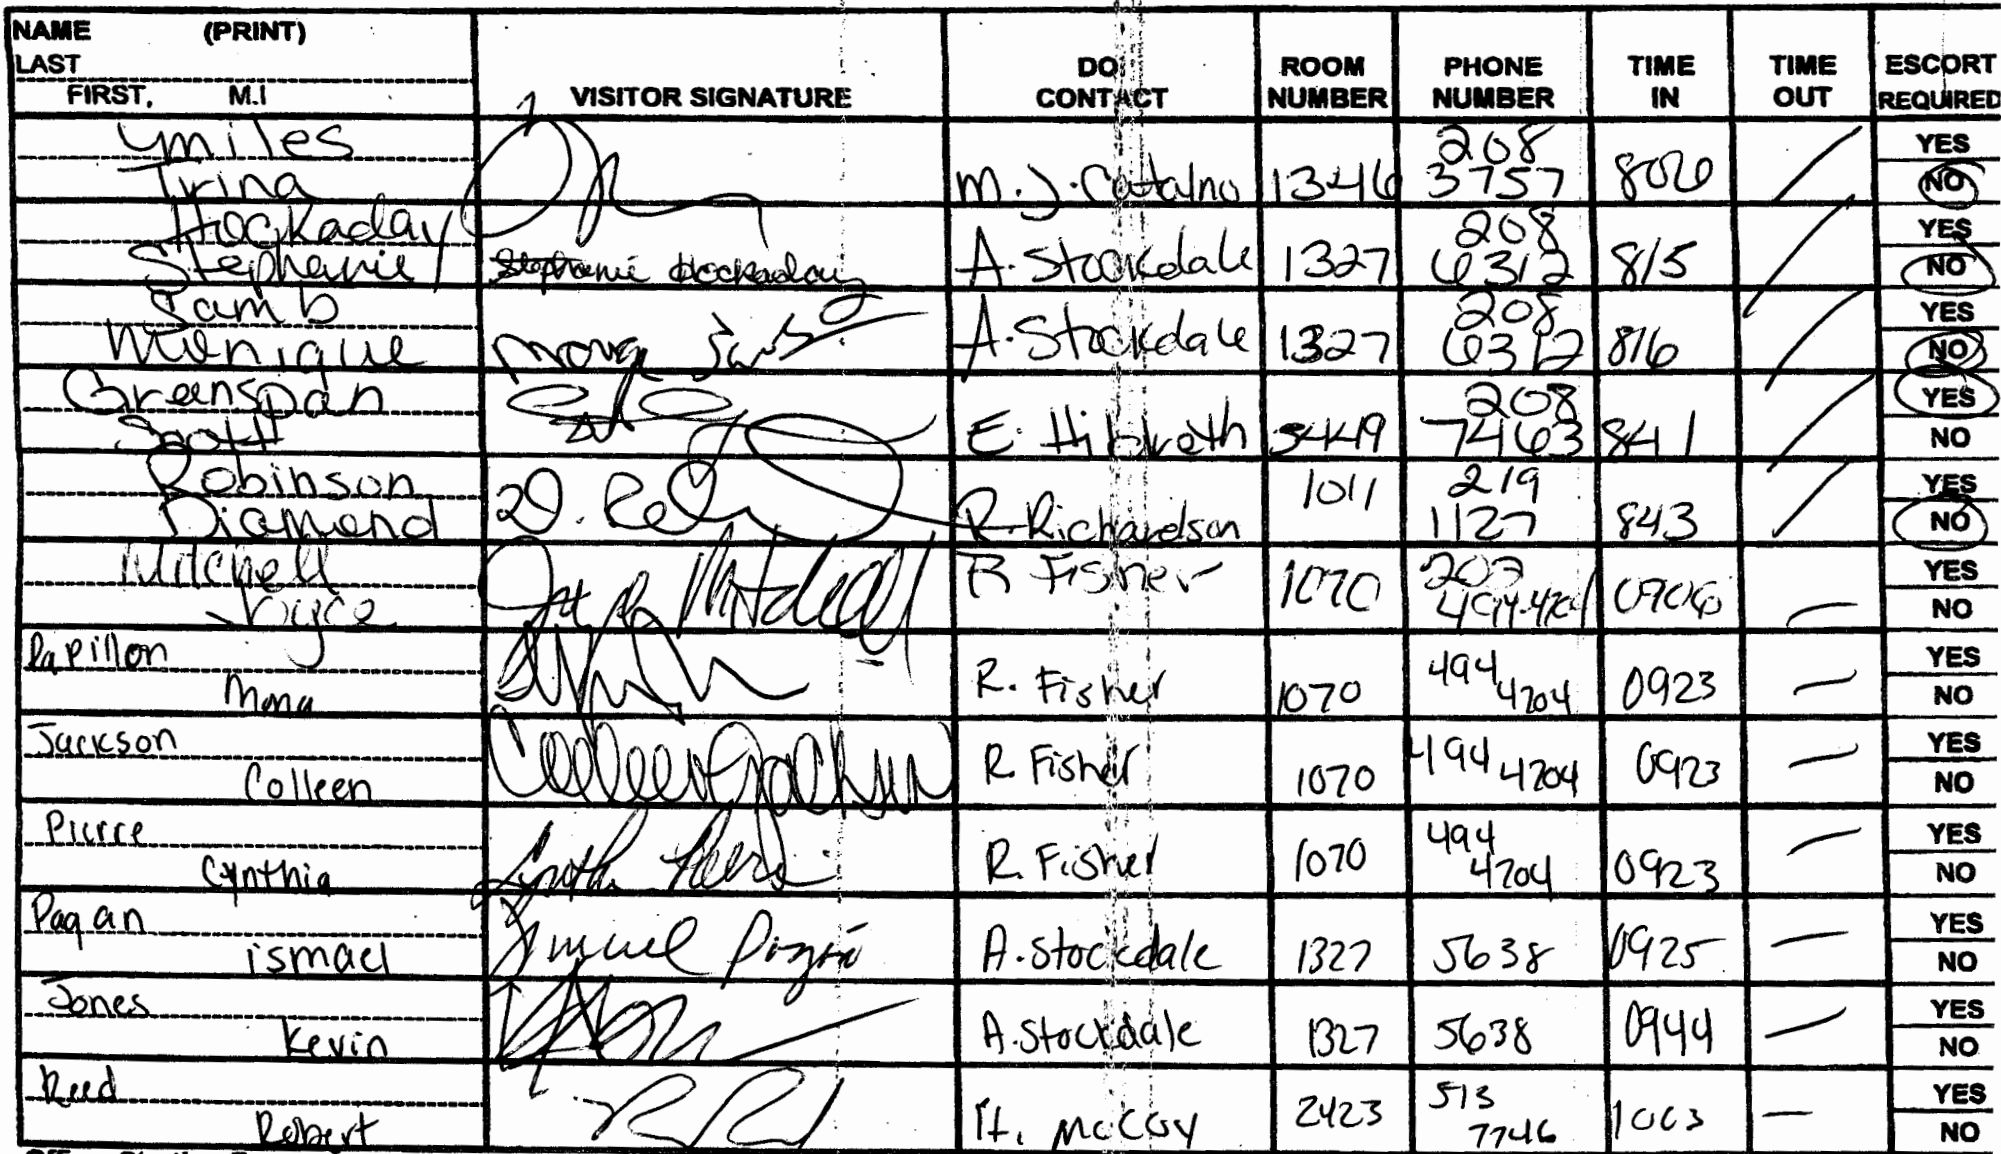 NAME (PRINT)
LAST
FIRST, M.I
VISITOR SIGNATURE
DO CONTACT
ROOM NUMBER
PHONE NUMBER
TIME IN
TIME OUT
ESCORT REQUIRED
Ymiles
Trina
M.J. Catalno 1346 208 3757 8020 YES NO
Hockaday
Stephanie Stephanie Hockaday A. Stockdale 1327 208 6312 815 YES NO
Samb
Monique A. Stockdale 1327 208 6312 816 YES NO
Greenspan
Scott E. Hildreth 5449 208 7463 841 YES NO
Robinson
Diamond R. Richardson 1011 219 1127 843 YES NO
Mitchell
Joyce Joyce Mitchell R Fisher 1070 202 494-4704 0906 YES NO
Papillon
Mona R. Fisher 1070 494 4704 0923 YES NO
Jackson
Colleen Colleen Jackson R. Fisher 1070 494 4704 0923 YES NO
Pierre
Cynthia R. Fisher 1070 494 4704 0923 YES NO
Pagan
ismael Ismael Pagan A. Stockdale 1327 5638 0925 YES NO
Jones
Kevin A. Stockdale 1327 5638 0944 YES NO
Reed
Robert H. McCoy 2423 513 7746 1003 YES NO